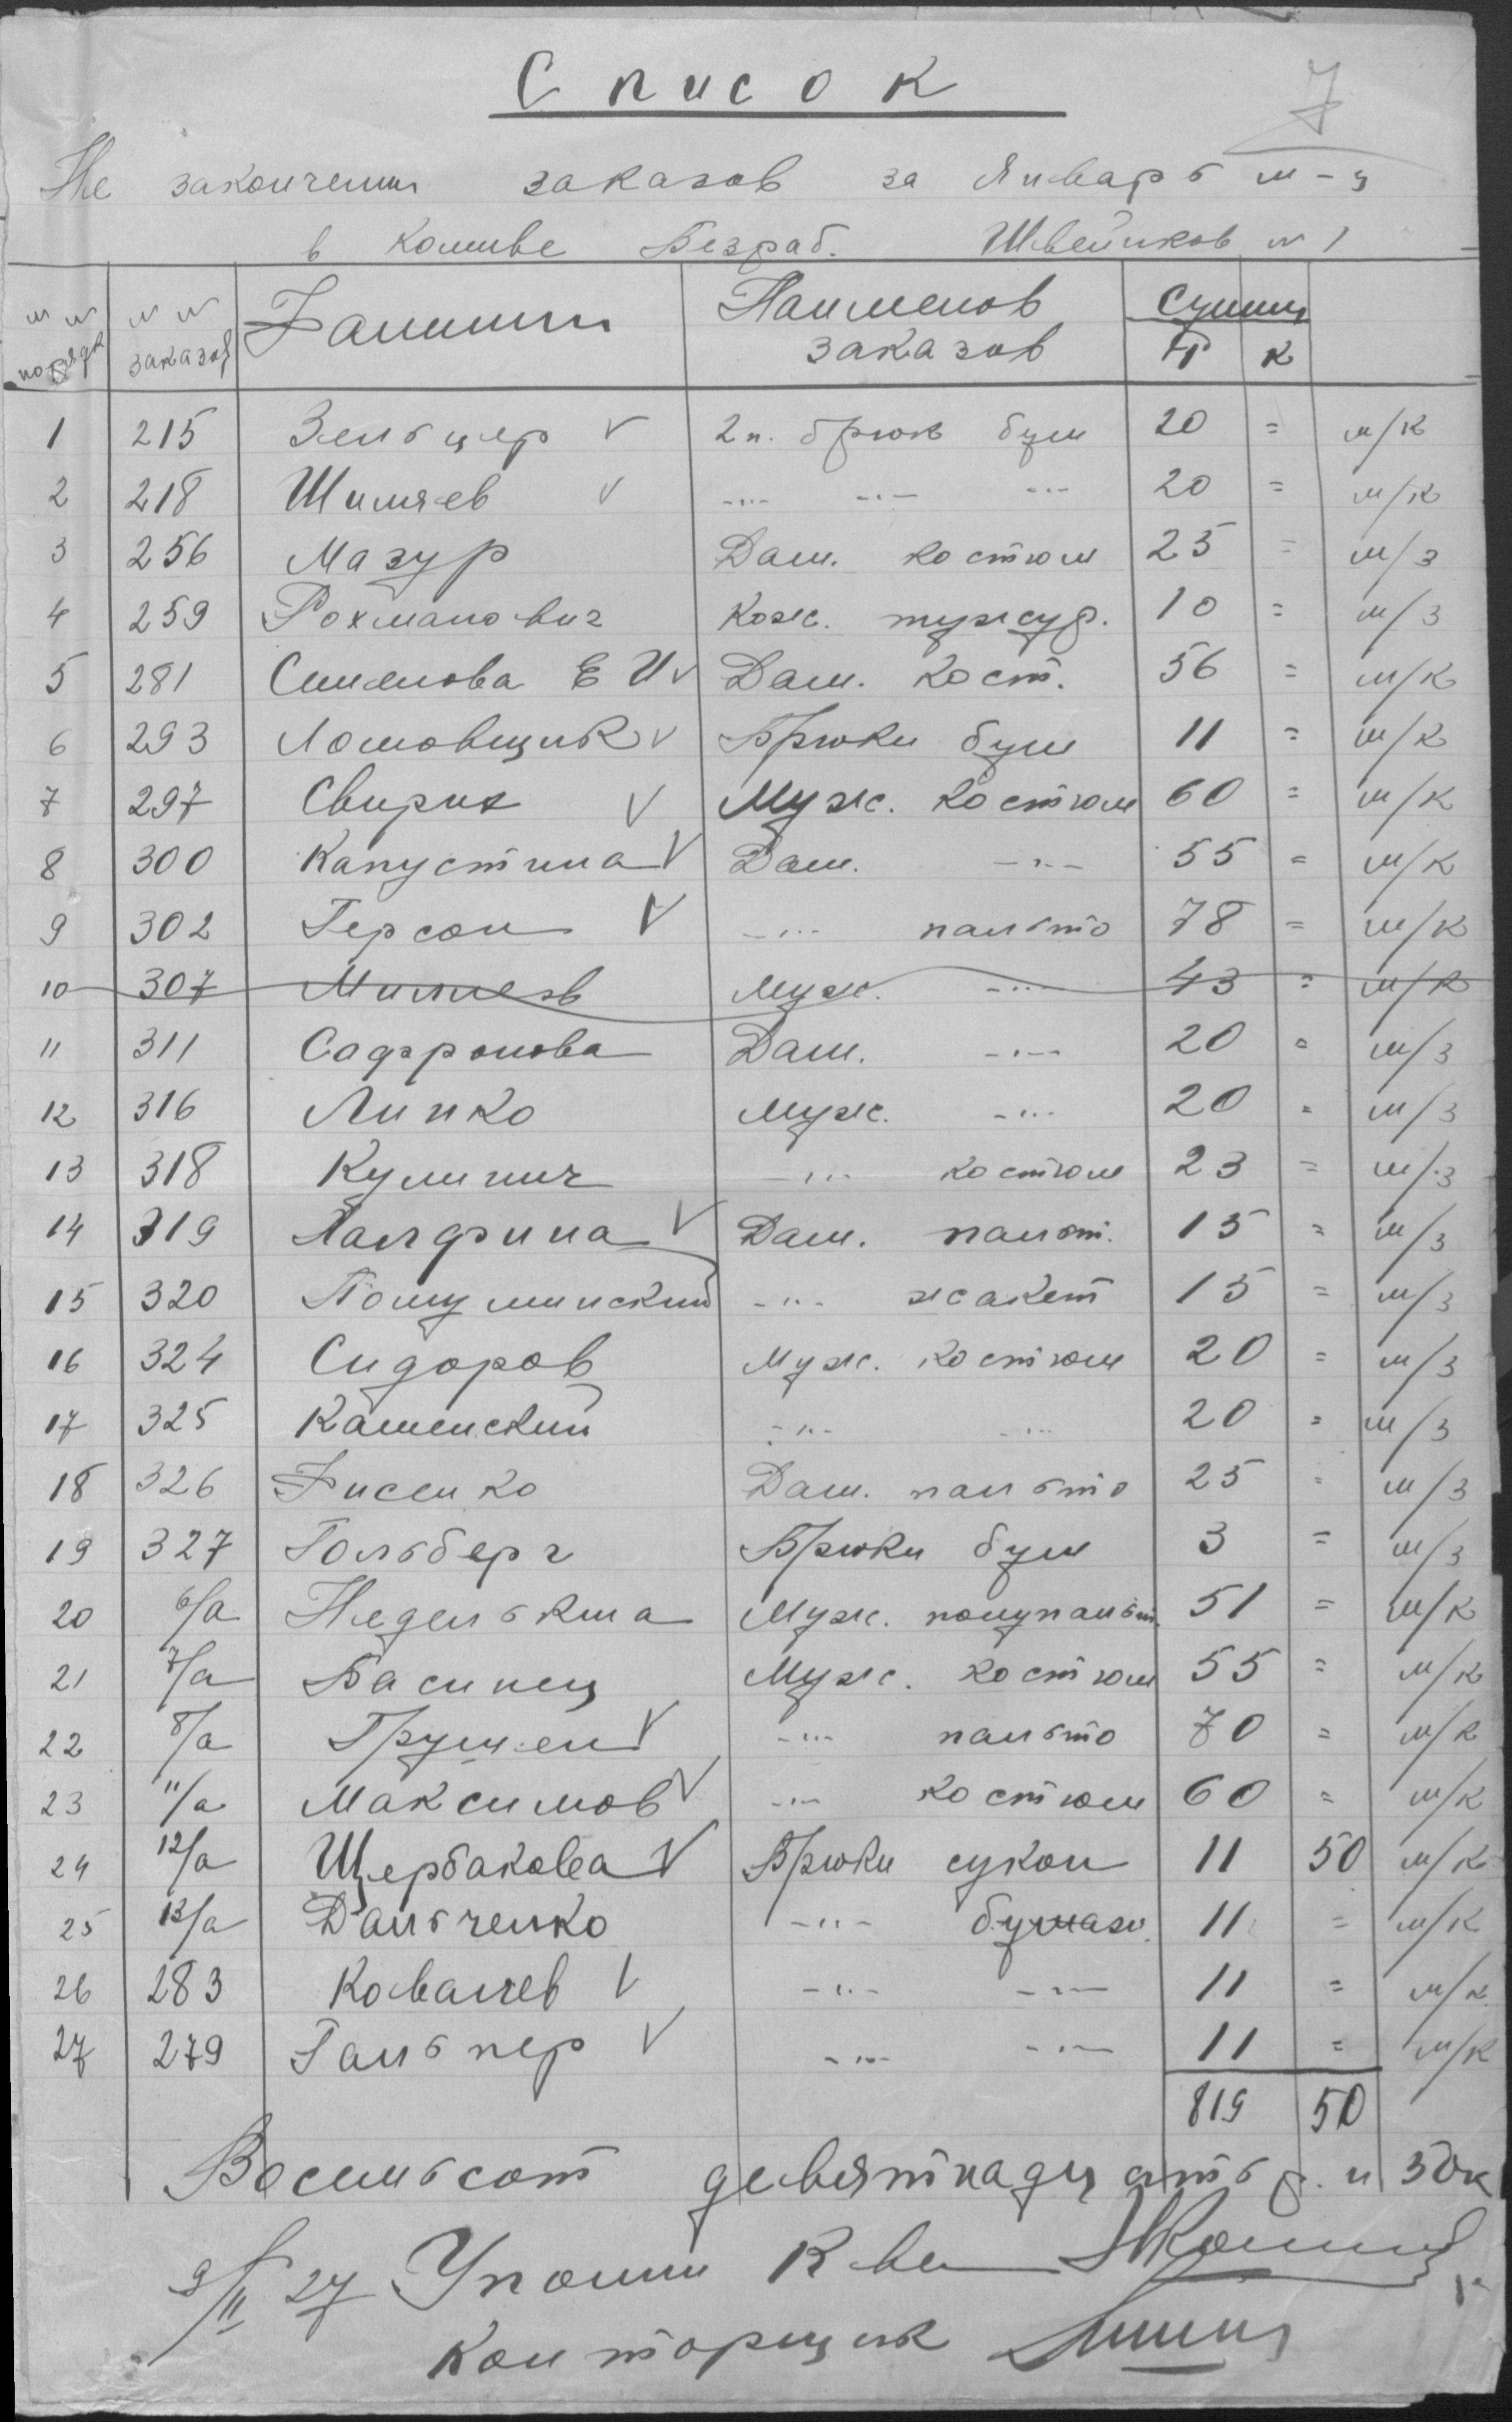 Список
7
Не закончении заказов за Январь м-ц
в Кол-ве Безраб. Швейников № 1
№ № порядк № № заказов Фамилии Наименов заказов Сумма Р К
1 215 Зельцер V 2 п. брюк бум 20 = м/к
2 218 Шиляев V -"- -"- -"- 20 = м/к
3 256 Мазур Дам. костюм 25 = м/з
4 259 Рохманович Кож. тужур. 10 = м/з
5 281 Семенова Е И V Дам. Кост. 56 = м/к
6 293 Ломовщик V Брюки бум 11 = м/к
7 297 Свирих V Муж. костюм 60 = м/к
8 300 Капустина V Дам. -"- 55 = м/к
9 302 Герсон V -"- пальто 78 = м/к
10 307 Муж. -"- 43 = м/к
11 311 Софронова Дам. -"- 20 = м/з
12 316 Липко Муж. -"- 20 = м/з
13 318 Кулинич -"- костюм 23 = м/з
14 319 V Дам. пальт. 15 = м/з
15 320 -"- жакет 15 = м/з
16 324 Сидоров Муж. костюм 20 = м/з
17 325 Каменский -"- -"- 20 = м/з
18 326 Фисенко Дам. пальто 25 = м/з
19 327 Гольберг Брюки бум 3 = м/з
20 6/а Неделькина Муж. полупальт. 51 = м/к
21 7/а Басинец Муж. костюм 55 = м/к
22 8/а V -"- пальто 70 = м/к
23 11/а Максимов V -"- костюм 60 = м/к
24 12/а Щербакова V Брюки сукон 11 50 м/к
25 13/а Дальченко -"- бумаз. 11 = м/к
26 283 Ковалев V -"- -"- 11 = м/к
27 279 Гальпер V -"- -"- 11 = м/к
819 50
Восемьсот девятнадцать р. и 50к
9/II 27 Уполн К-ва
Конторщик